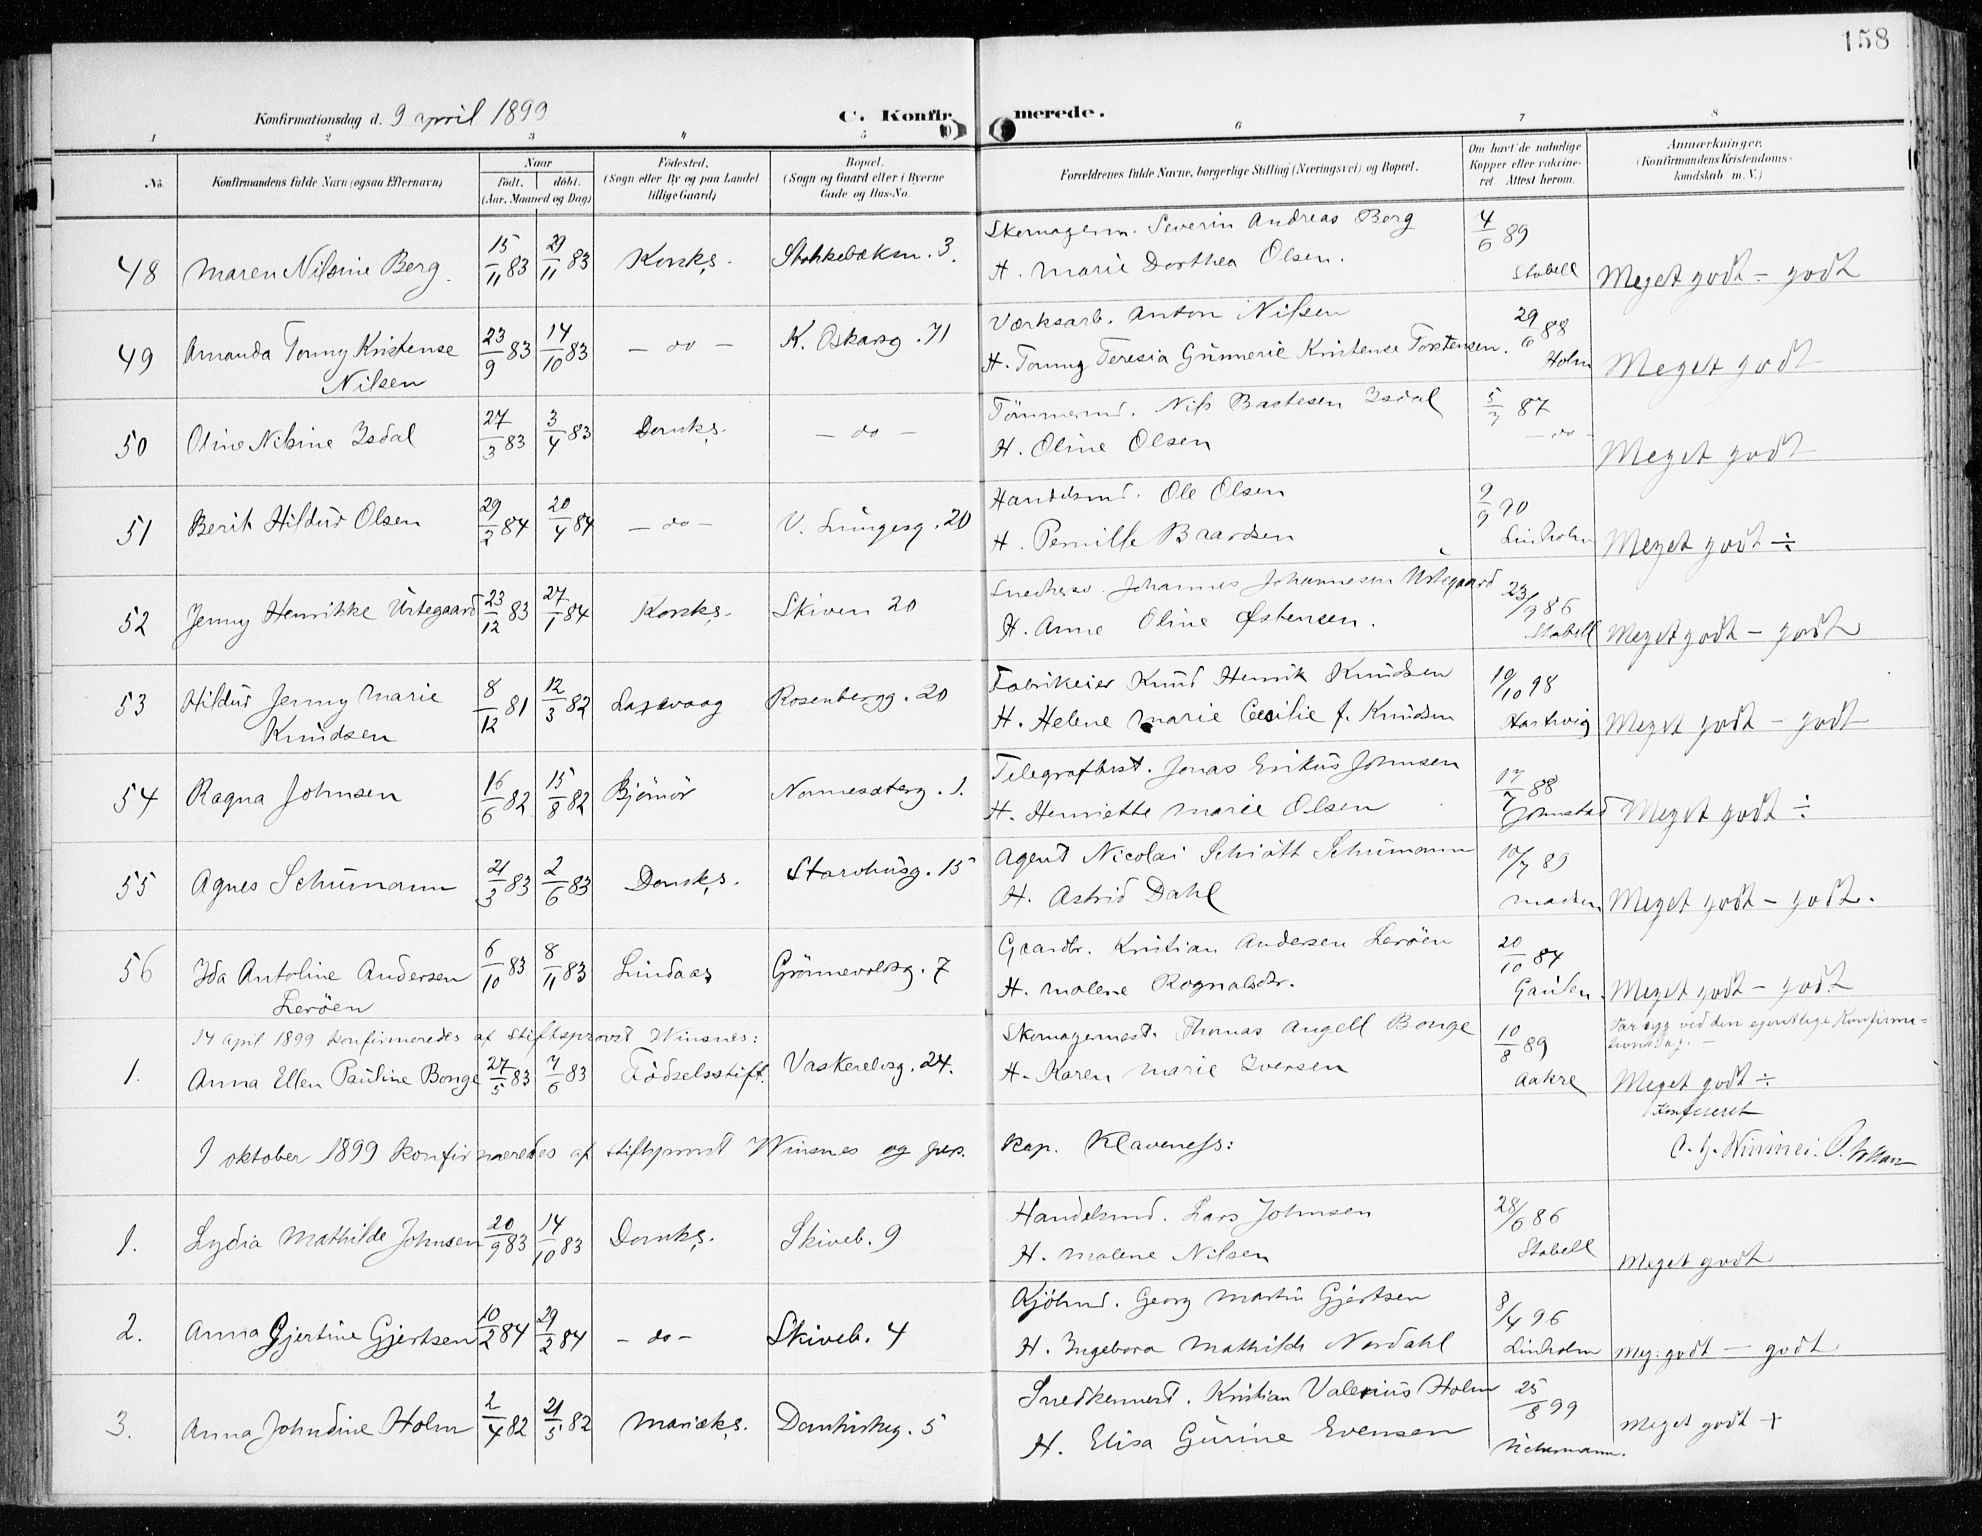 158
Konfirmationsdag d. 9 april 1899
C. Konfirmerede.
1 2 3 4 5 6 7 8
No.
Konfirmandens fulde Navn (ogsaa Efternavn)
Naar
født. døbt.
(Aar, Maaned og Dag)
Fødested.
(Sogn eller By og paa Landet
tillige Gaard)
Bopæl.
(Sogn og Gaard eller i Byerne
Gade og Hus-No.
Forældrenes fulde Navne, borgerlige Stilling (Næringsvei) og Bopæl.
Om havt de naturlige
Kopper eller vakcine-
ret. Attest herom.
Anmærkninger,
(Konfirmandens Kristendoms-
kundskab m. V.)
48 Maren Nilsine Berg. 15/11 83 29/11 83 Korsks. Stokkebæksm. 3. Skomagerm. Severin Andreas Berg 4/6 89
H. Marie Dorthea Olsen. Stabell Meget godt - godt
49 Amanda Tonny Kristense 23/9 83 14/10 83 - do - K. Oskarsg. 71 Værksarb. Anton Nilsen 29/6 88
Nilsen H. Tonny Teresia Gunnerie Kristense Torstensen. Holm Meget godt
50 Oline Nilsine Isdal 27/3 83 3/4 83 Domks. - do - Tömmermd. Nils Bastesen Isdal 5/7 87
H. Oline Olsen - do - Meget godt
51 Berit Hildur Olsen 29/2 84 20/4 84 - do - V. Lungeg. 20 Handelsmd. Ole Olsen 9/9 90
H. Pernille Baardsen Linholm Meget godt ÷
52 Jenny Henrikke Urtegaard 23/12 83 27/1 84 Korsks. Skiven 20 Snedkersv. Johannes Johannesen Urtegaard 23/9 86
H. Anne Oline Østensen. Stabell Meget godt - godt
53 Hildur Jenny Marie 8/12 81 12/3 82 Laxevaag Rosenbergg. 20 Fabrikeier Knud Henrik Knudsen 19/10 98
Knudsen H. Helene Marie Cecilie f. Knudsen Hartwig Meget godt - godt
54 Ragna Johnsen 16/6 82 15/8 82 Bjömör Nonnesæterg. 1. Telegrafbest. Jonas Erikus Johnsen 17/7 88
H. Henriette Marie Olsen Johnstad Meget godt ÷
55 Agnes Schumann 21/3 83 2/6 83 Domks. Starvhusg. 15 Agent Nicolai Schiött Schumann 10/7 89
H. Astrid Dahl Madsen Meget godt - godt.
56 Ida Antoline Andersen 6/10 83 8/11 83 Lindaas Grönnevoldsg. 7 Gaardbr. Kristian Andersen Leröen 20/10 84
Leröen H. Malene Rognaldsdr. Meget godt - godt
14 April 1899 konfirmeredes af Stiftsprovst Winsnes:
1. Anna Ellen Pauline Bonge 27/5 83 7/6 83 Födselsstift. Vaskerelvsg. 24. Skomagermest. Thomas Angell Bonge 10/8 89 Var syg ved den egentlige Konfirma-
tionsdag. -
H. Karen Marie Iversen Aakre Meget godt ÷
Konfereret
1 oktober 1899 konfirmeredes af stiftsprovst Winsnes og pers. kap. Klaveness:
1. Lydia Mathilde Johnsen 20/9 83 14/10 83 Domks. Skiveb. 9 Handelsmd. Lars Johnsen 28/6 86
H. Malene Nilsen Stabell Meget godt
2. Anna Gjertine Gjertsen 10/2 84 29/2 84 - do - Skiveb. 4 Kjöbmd. Georg Martin Gjertsen 8/4 96
H. Ingebora Mathilde Nordahl Linholm Meg: godt - godt
3. Anna Johndine Holm 2/4 82 21/5 82 Mariæks. Domkirkeg. 5 Snedkermest. Kristian Valerius Holm 25/8 99
H. Elisa Gurine Evensen Meget godt +